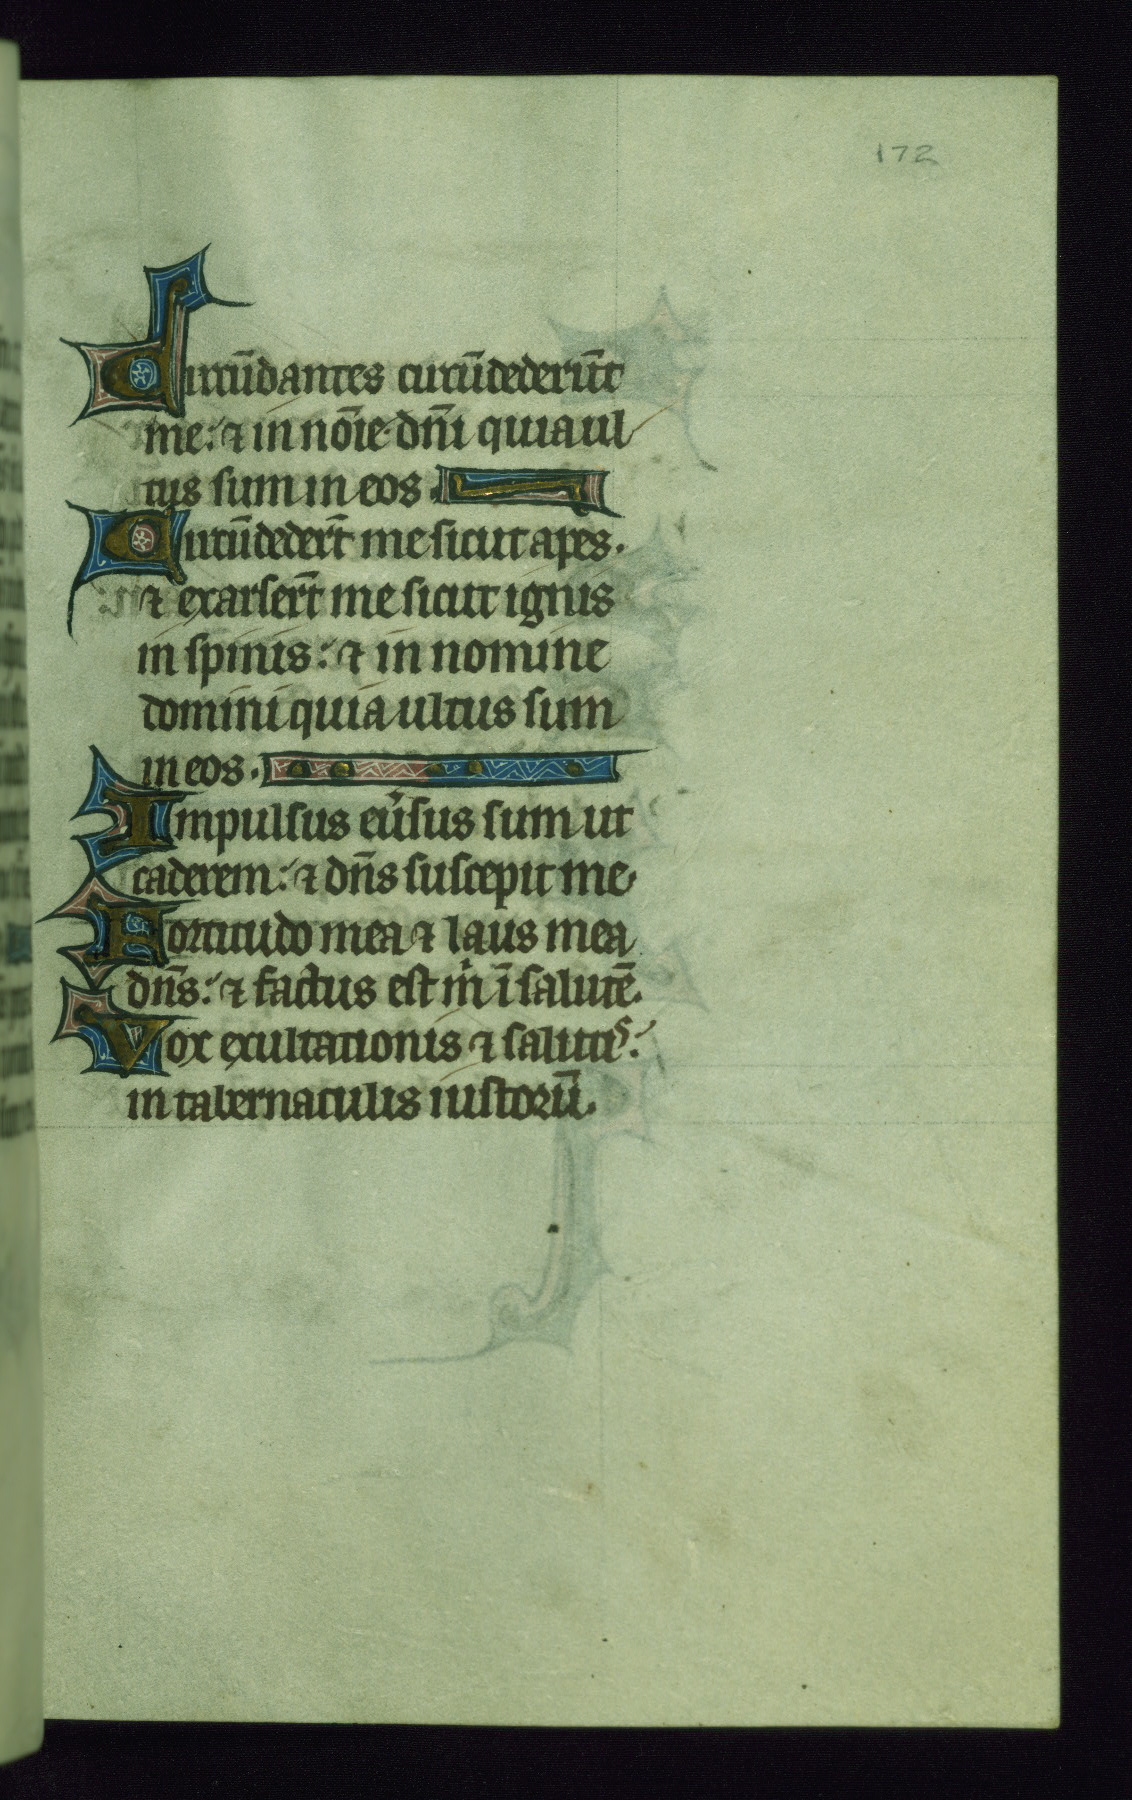 172
Circūdantes circūdederūt
me: ⁊ in nōīe dn̄i quia ul
tus sum in eos.
Circūdeder̄t me sicut apes.
⁊ exarser̄t me sicut ignis
in spinis: ⁊ in nomine
domini quia ultus sum
in eos.
Impulsus eu̾sus sum ut
caderem: ⁊ dn̄s suscepit me.
Fortitudo mea ⁊ laus mea
dn̄s: ⁊ factus est mⁱ ī salutē.
Vox exultationis ⁊ salutis:
in tabernaculis iustorū.